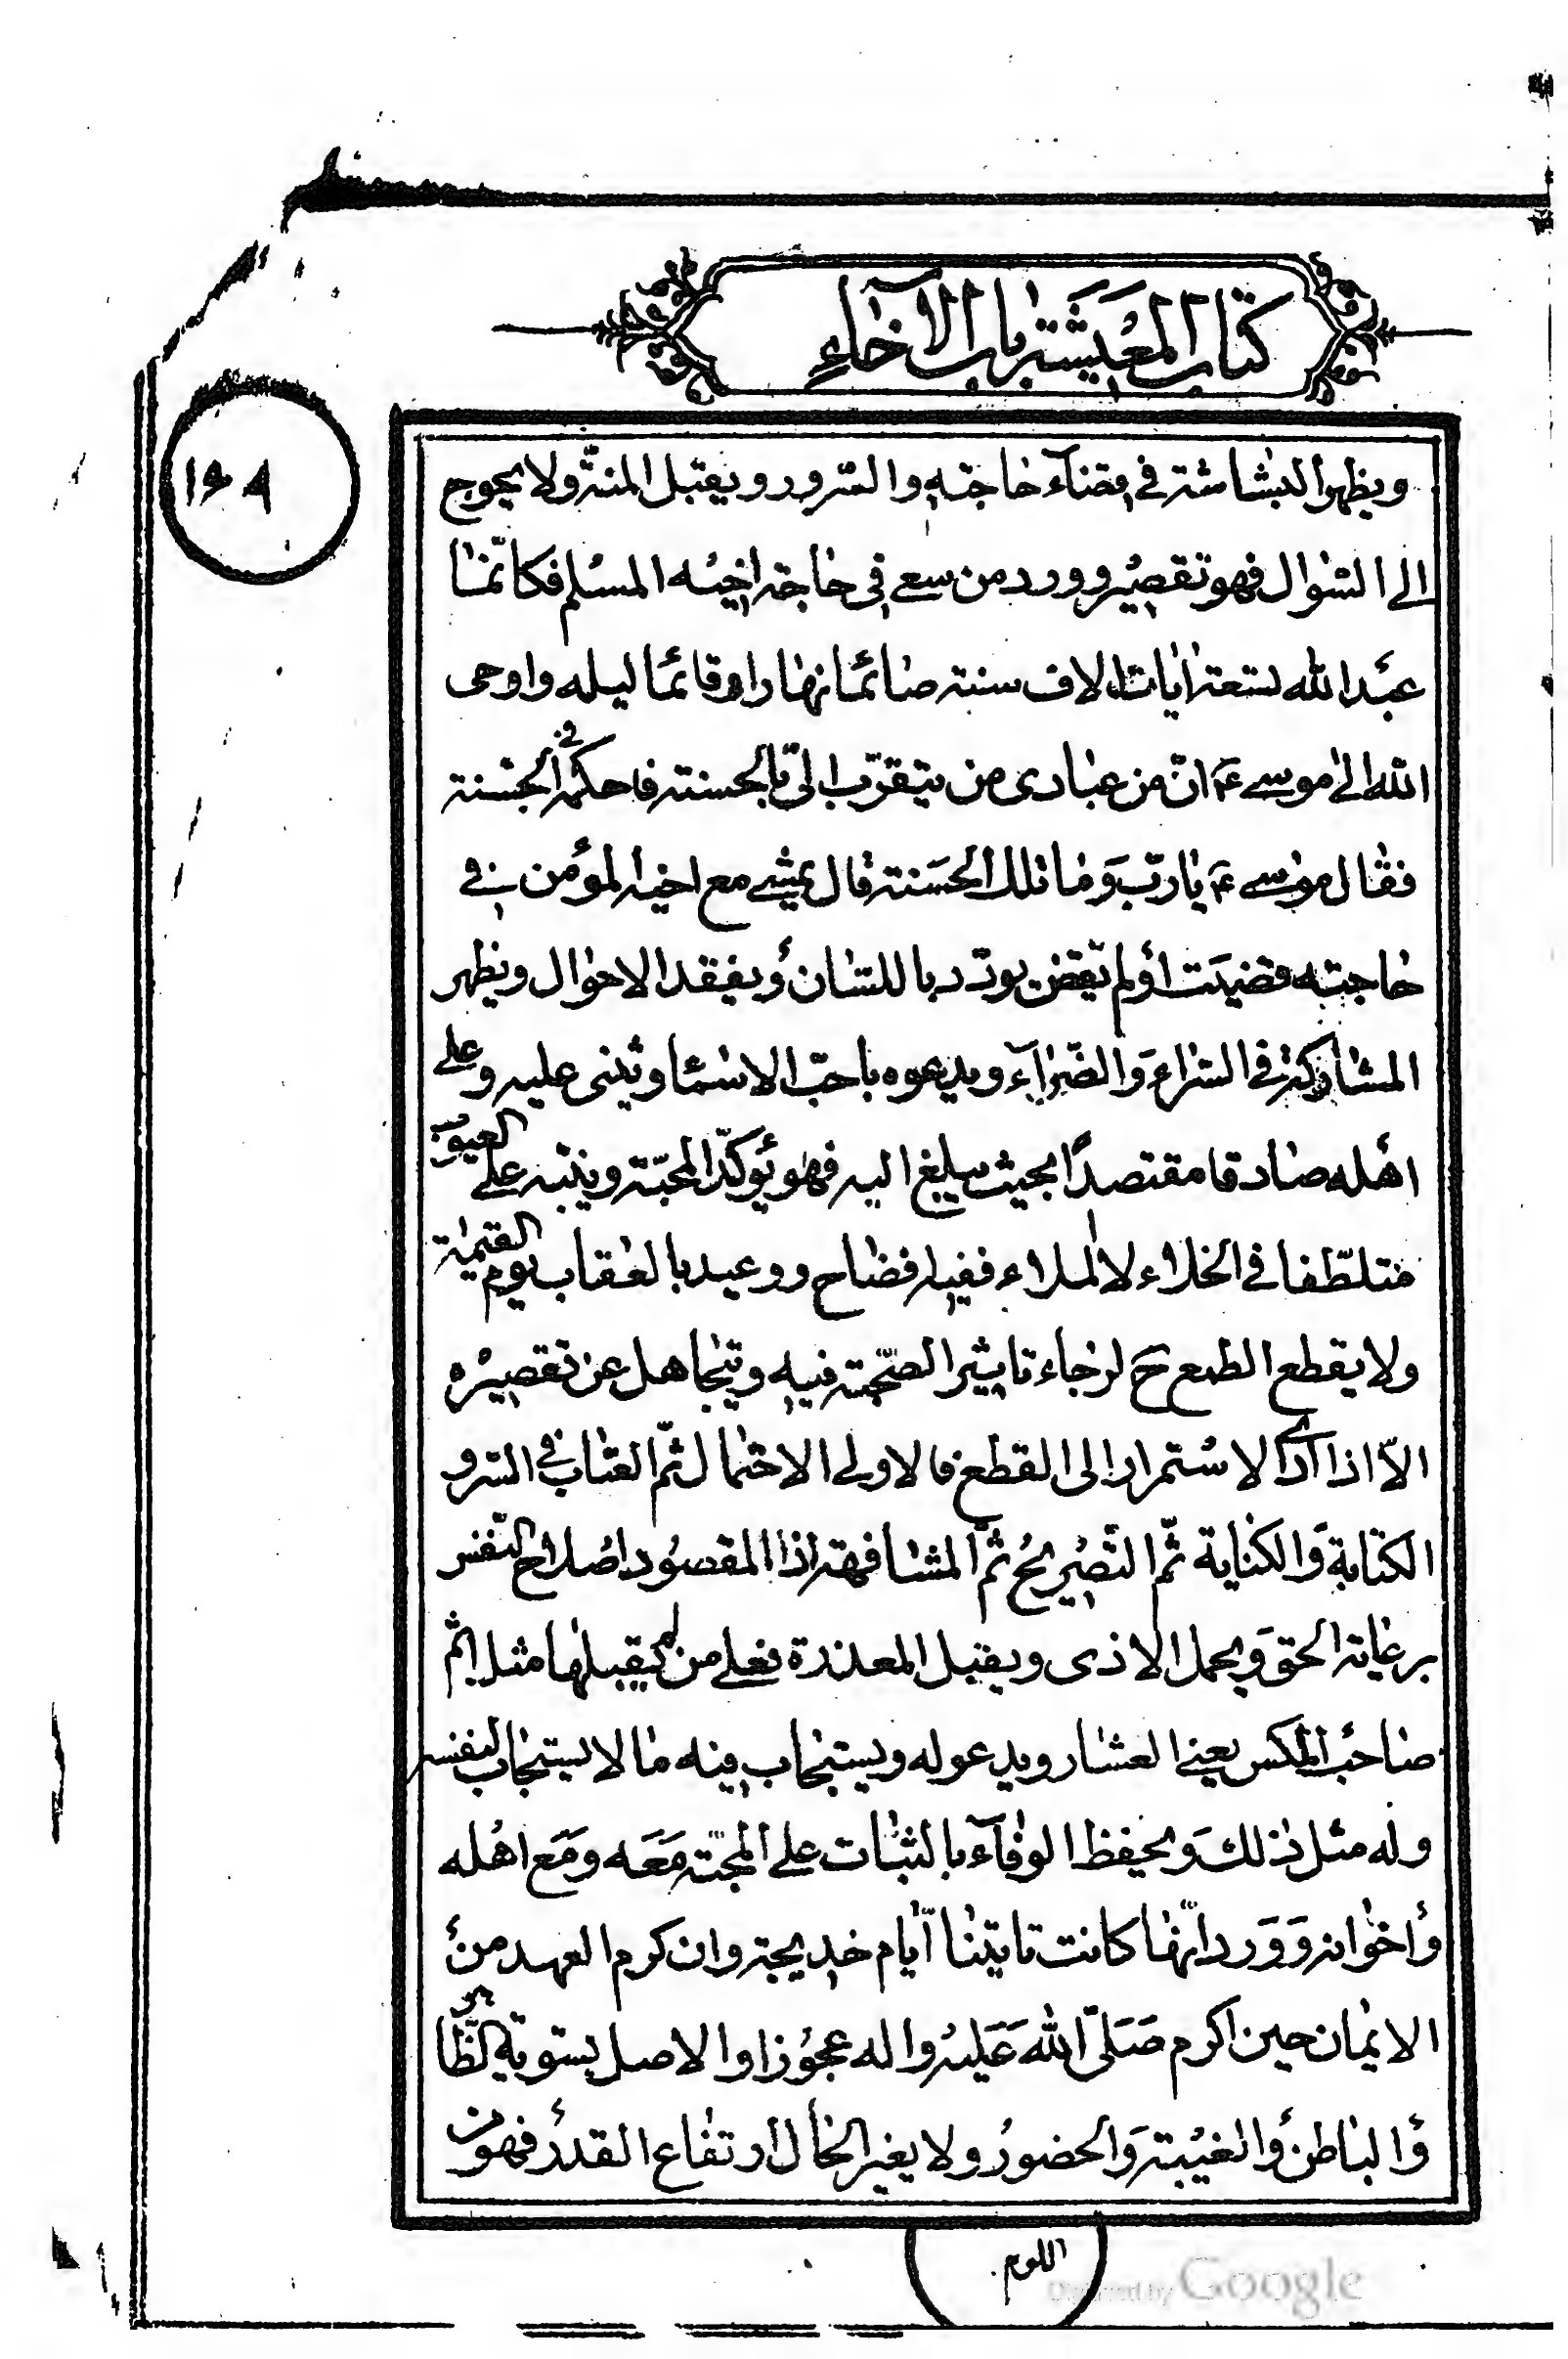 كتاب المعيشة باب الآخاء
١٥٩
ويظهر البشاشة في قضآء حاجته والسرور ويقبل المنة ولا يحوج
الى السؤال فهو تقصير وورد من سعى في حاجة اخيه المسلم فكانّما
عبد الله تسعة الاف سنة صائما نهاره قائما ليله واوحى
الله الى موسى ع انّ من عبادى من يتقرّب الىّ بالحسنة فاحكمه في الجنّة
فقال موسى ع يا ربّ وما تلك الحسنة قال يمشي مع اخيه المؤمن في
حاجته قضيت اولم تقض يودد باللسان ويفقد الاحوال ويظهر
المشاركة في السراء والضّرآء ويدعوه باحبّ الاسما ويثنى عليه وعلى
اهله صادقا مقتصدًا بحيث يبلغ اليه فهو يؤكّد المحبّة وينبه على العيوب
متلطّفا في الخلاء لا الملاء ففيه افضاح ووعيد بالعقاب يوم القيمة
ولا يقطع الطمع ح لرجاء تاثير الصّحبة فيه ويتجاهل عن تقصيره
الّا اذا ادّى الاستمرار الى القطع فالاولى الاحتمال ثمّ العتاب في السر و
الكتابة والكناية ثمّ التّصريح ثمّ المشافهة اذ المقصود اصلاح النّفس
برعاية الحق ويحمل الاذى ويقبل المعذرة فعلى من لم يقبلها مثل اثم
صاحب المكس يعني العشار ويدعو له ويستجاب فيه ما لا يستجاب لنفسه
وله مثل ذلك ويحفظ الوفآء بالثبات على المحبّة معه ومع اهله
واخوانه وورد انّها كانت تاتينا ايّام خديجة وان كرم العهد من
الايمان حين اكرم صلّى الله عليه واله عجوزا والاصل بتسوية الظّاهر
والباطن والغيبة والحضور ولا يغير الحال ارتفاع القدر فهو من
اللوم
Digitized by Google